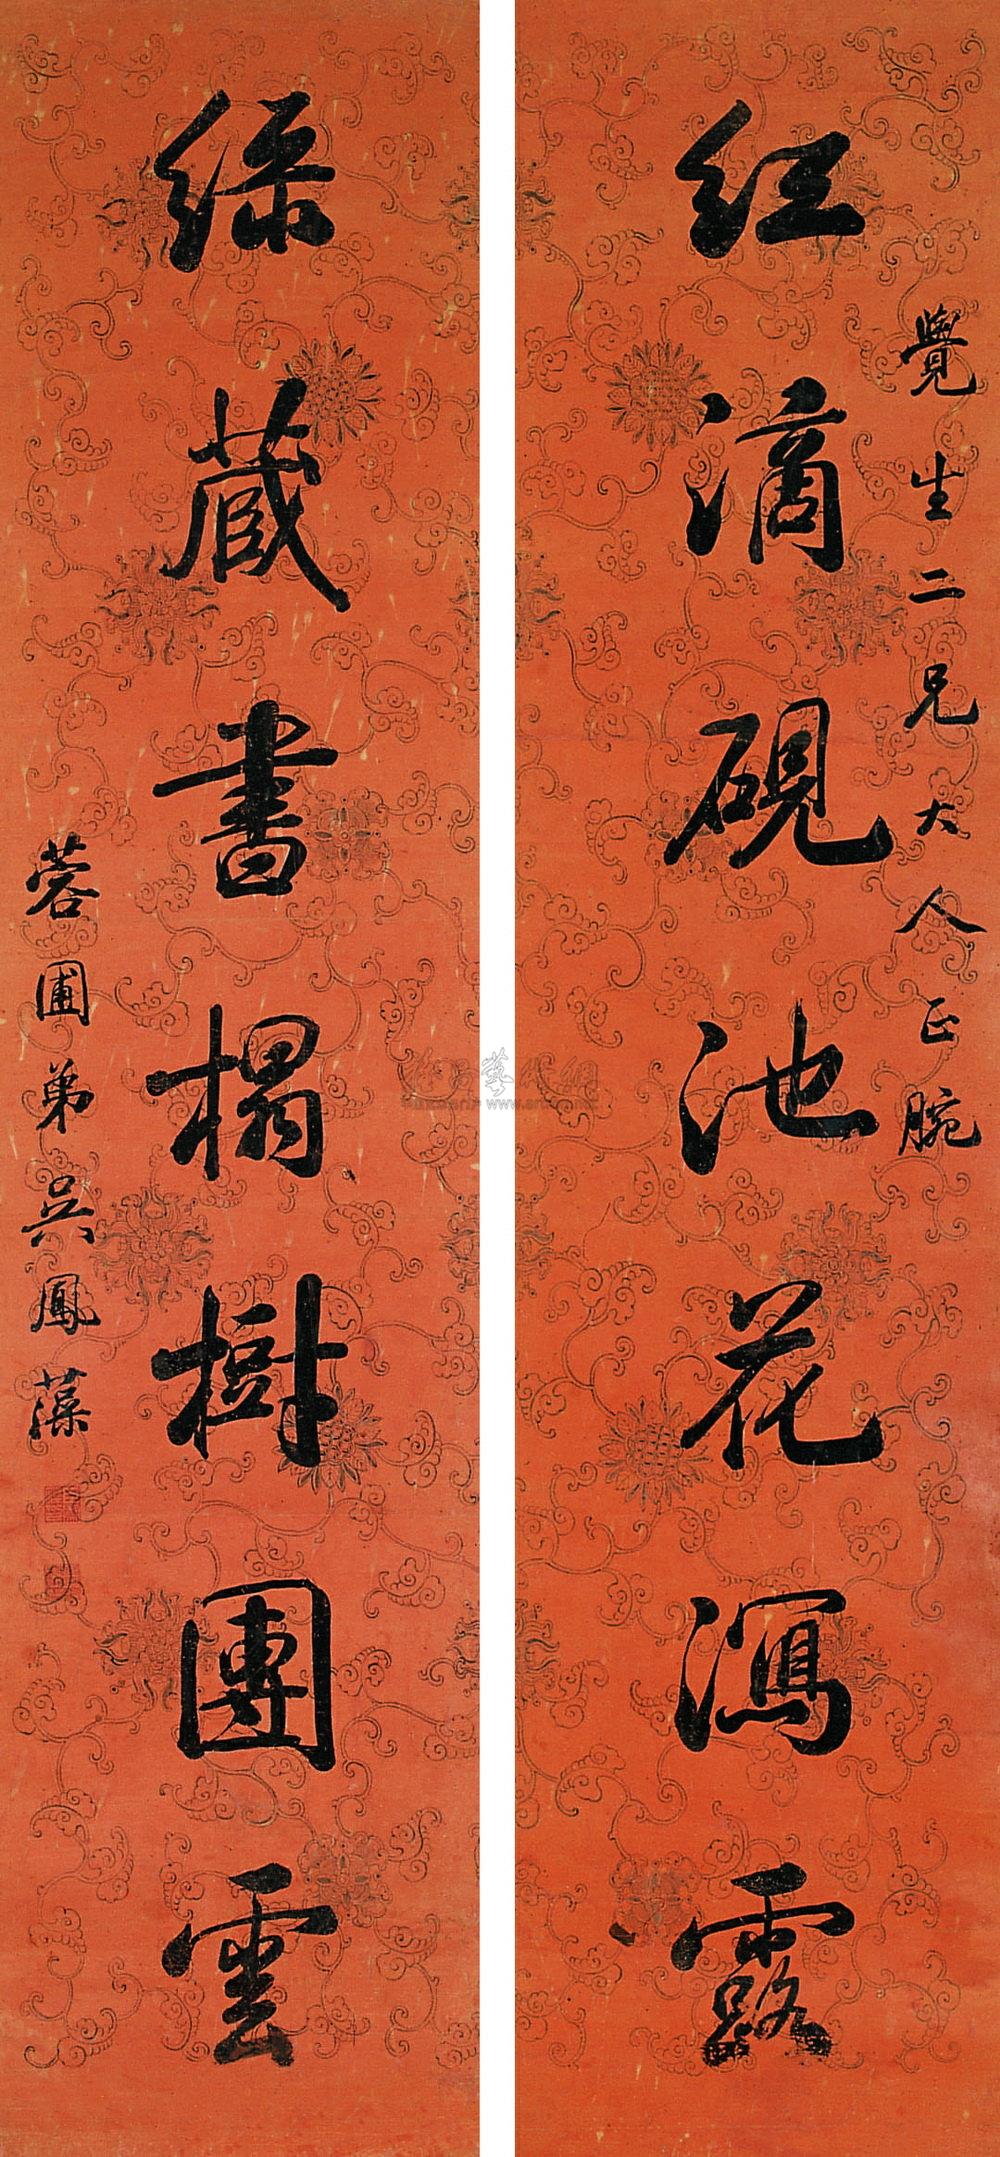 覺生二兄大人正腕
紅滴硯池花瀉露
綠藏書榻樹團雲
蓉圃弟吳鳳藻
www.art